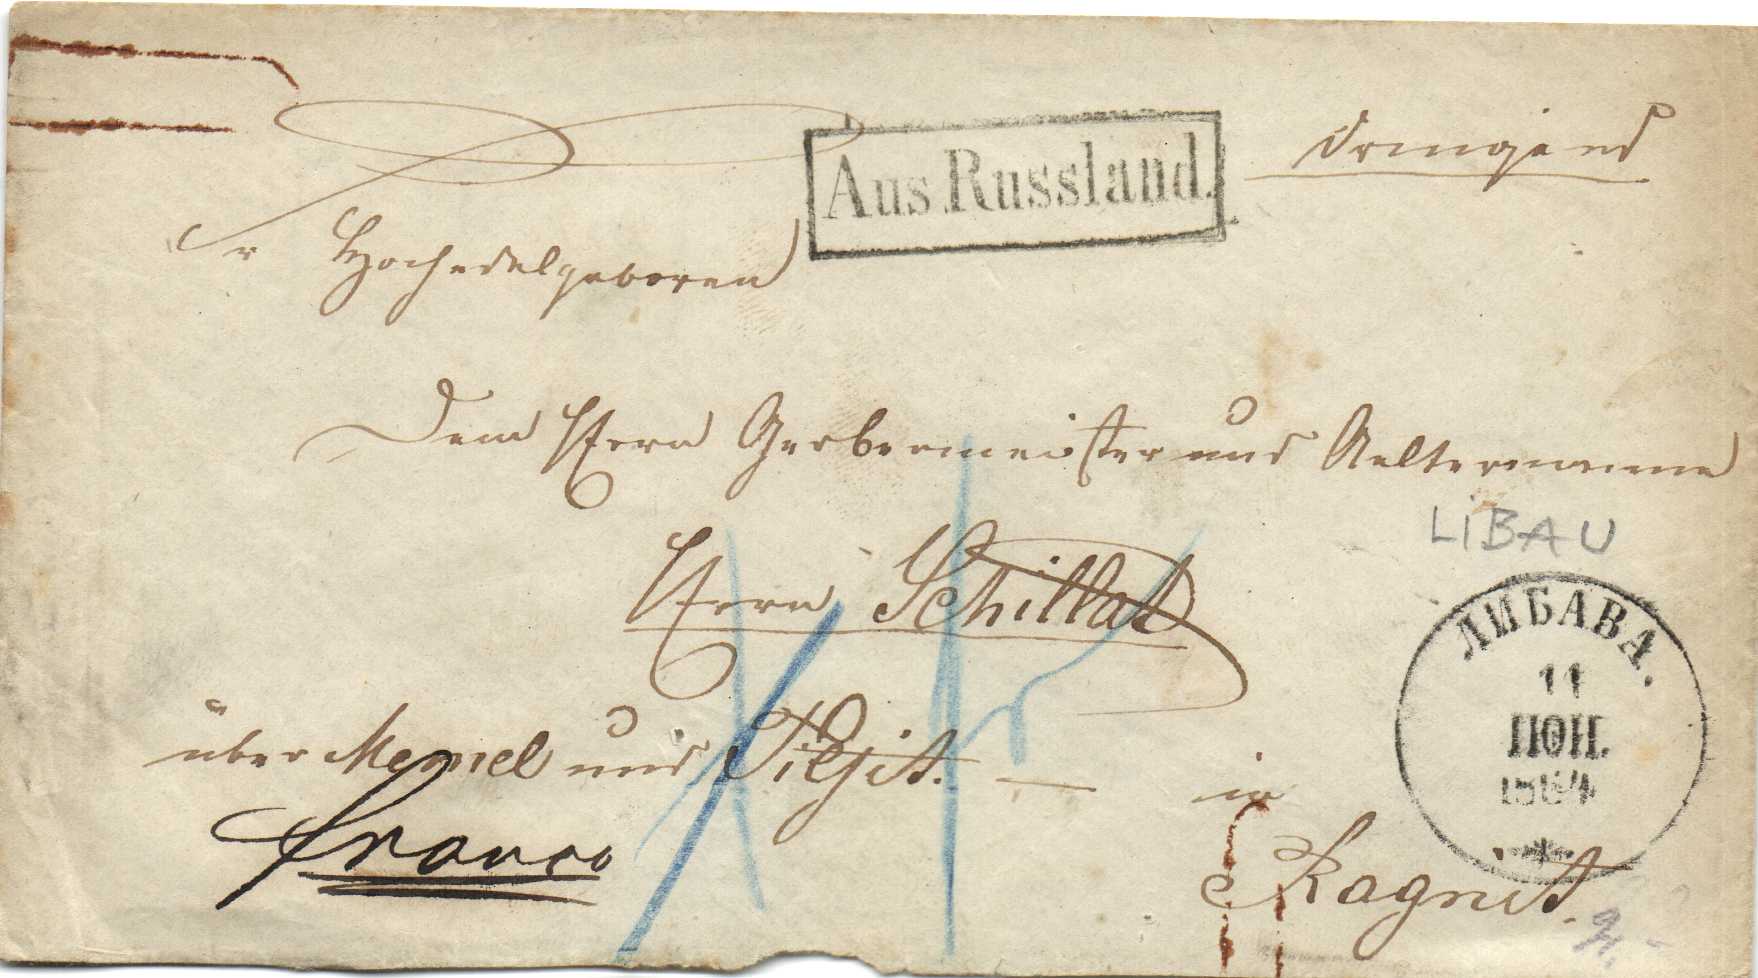 Aus Russland.
Dringend
Sr Hochedelgeboren
Dem Herrn Gerbermeister und Aeltermann
LIBAU
Herrn Schillat
ЛИБАВА.
11
ІЮН.
1864
über Memel und Tilsit. — in
franco
Ragnit.